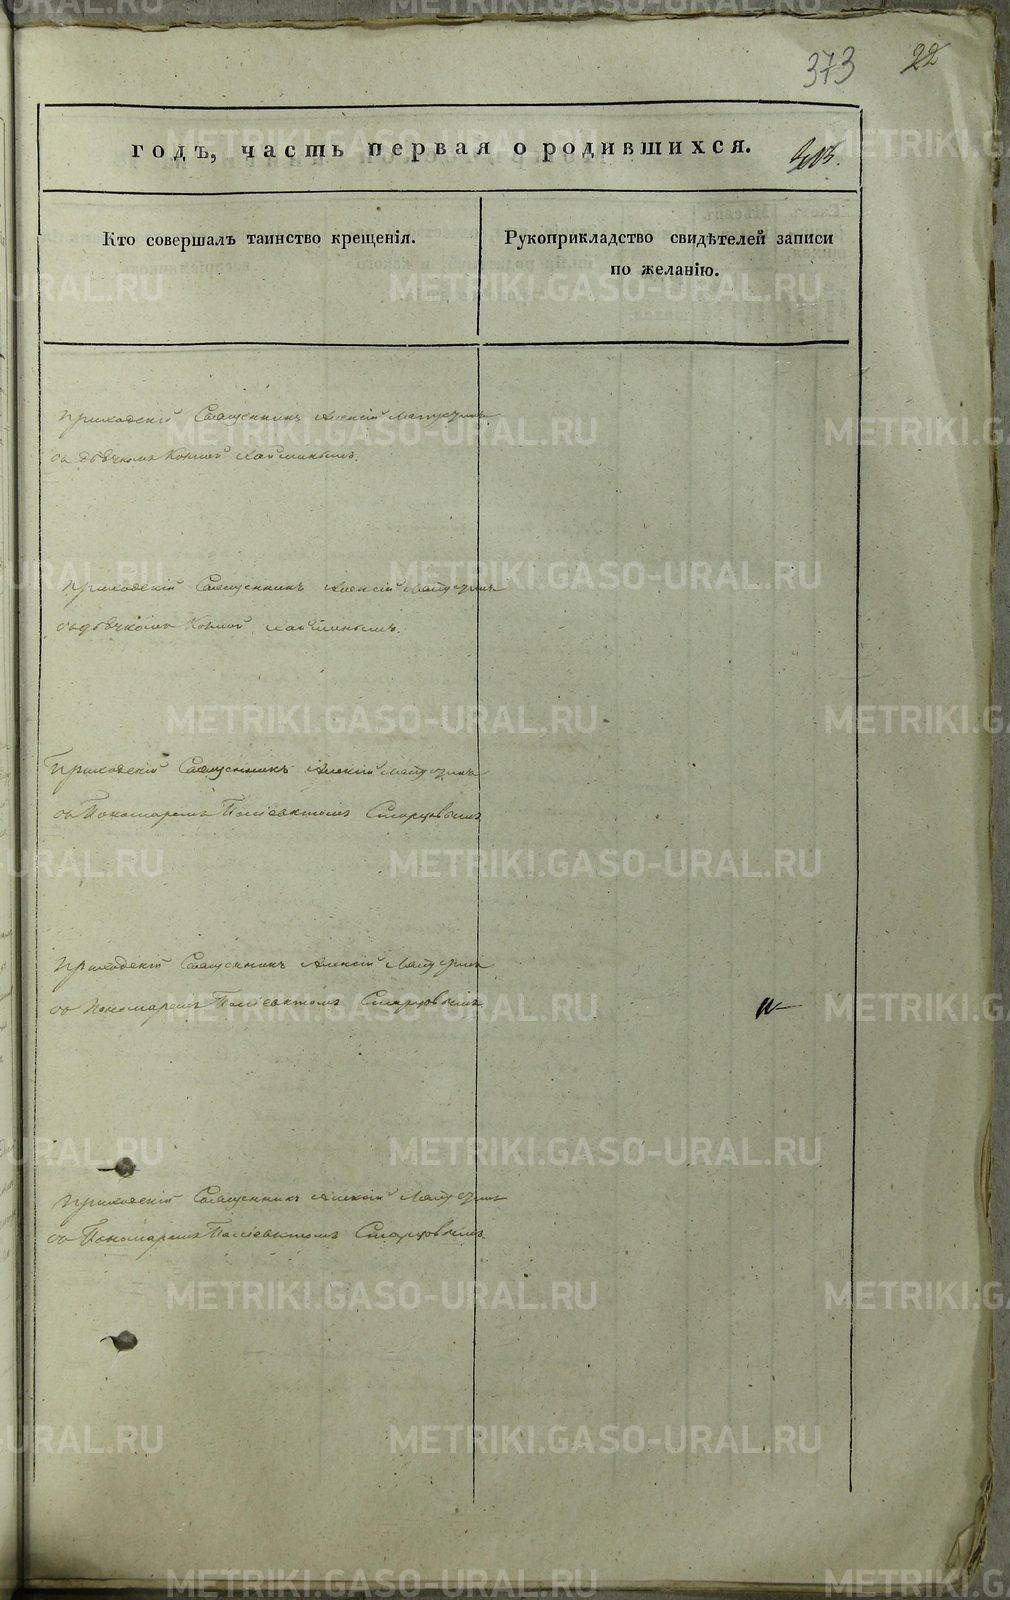 373 22
годъ, часть первая о родившихся.
Кто совершалъ таинство крещенія.
Рукоприкладство свидѣтелей записи
по желанію.
Приходскій Священникъ Алексій
съ дьячкомъ Козмой
Приходскій Священникъ Алексій
съ дьячкомъ Козмой
Приходскій Священникъ Алексій
съ Пономаремъ Поліевктомъ Старцовымъ
Приходскій Священникъ Алексій
съ Пономаремъ Поліевктомъ Старцовымъ
Приходскій Священникъ Алексій
съ Пономаремъ Поліевктомъ Старцовымъ
METRIKI.GASO-URAL.RU